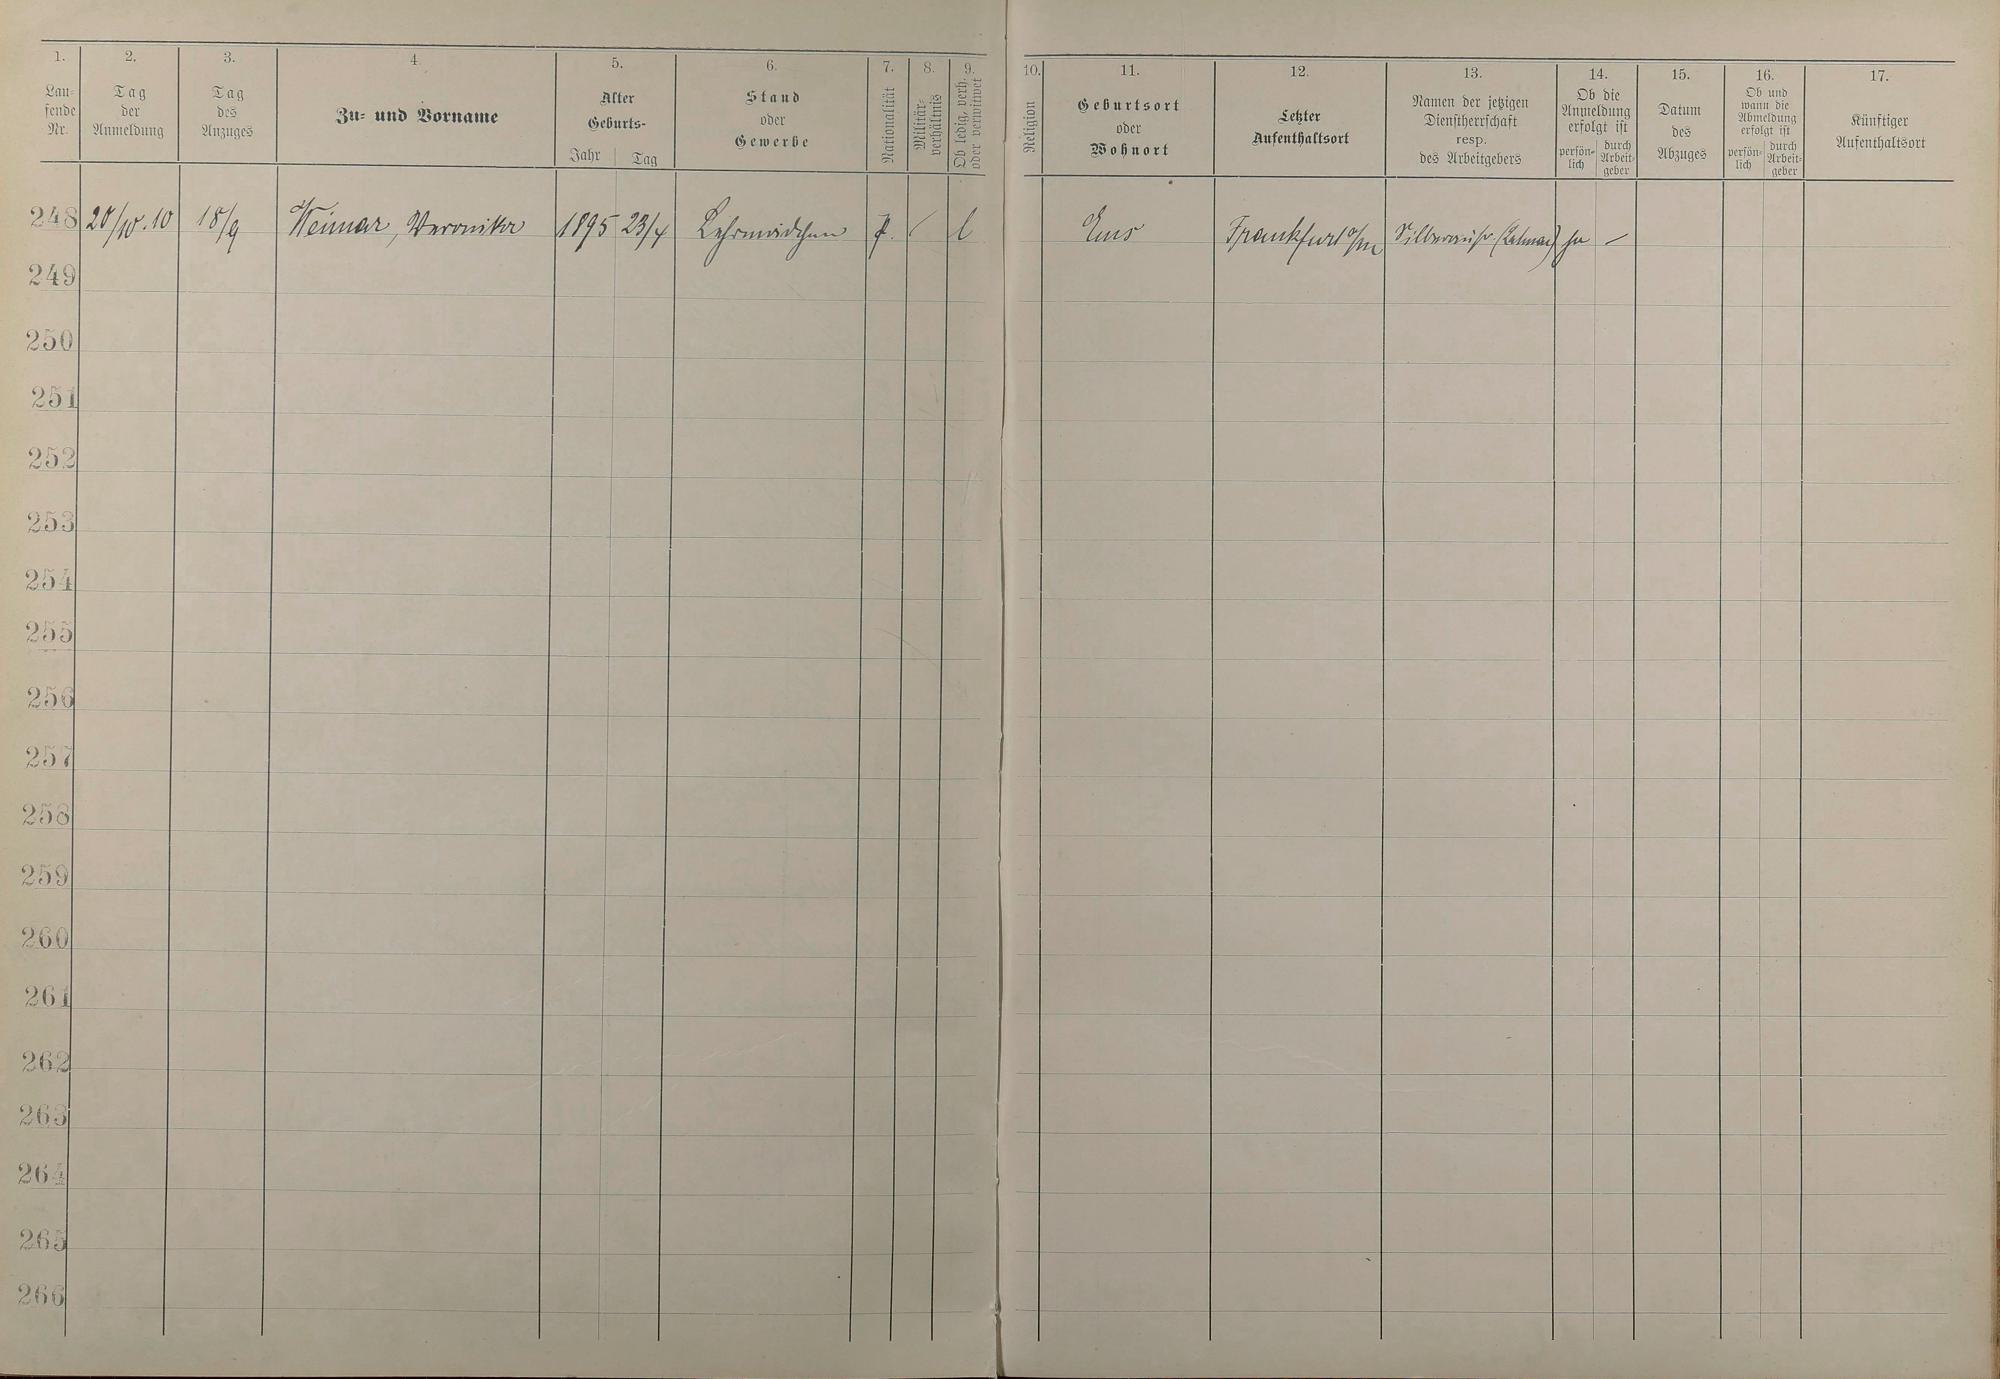 1. 2. 3. 4. 5. 6. 7. 8. 9. 10. 11. 12. 13. 14. 15. 16. 17.
Lau-
fende
Nr.
Tag
der
Anmeldung
Tag
des
Anzuges
Zu- und Vorname
Alter
Geburts-
Jahr Tag
Stand
oder
Gewerbe
Nationalität
Militär-
verhältnis
Ob ledig, verh.
oder verwitwet
Religion
Geburtsort
oder
Wohnort
Letzter
Aufenthaltsort
Namen der jetzigen
Dienstherrschaft
resp.
des Arbeitgebers
Ob die
Anmeldung
erfolgt ist
persön-
lich
durch
Arbeit-
geber
Datum
des
Abzuges
Ob und
wann die
Abmeldung
erfolgt ist
persön-
lich
durch
Arbeit-
geber
Künftiger
Aufenthaltsort
248 20/10.10 18/9 Weimar, Veronika 1895 23/4 Lehrmädchen P. / l Ems Frankfurt a/m ja –
249
250
251
252
253
254
255
256
257
258
259
260
261
262
263
264
265
266